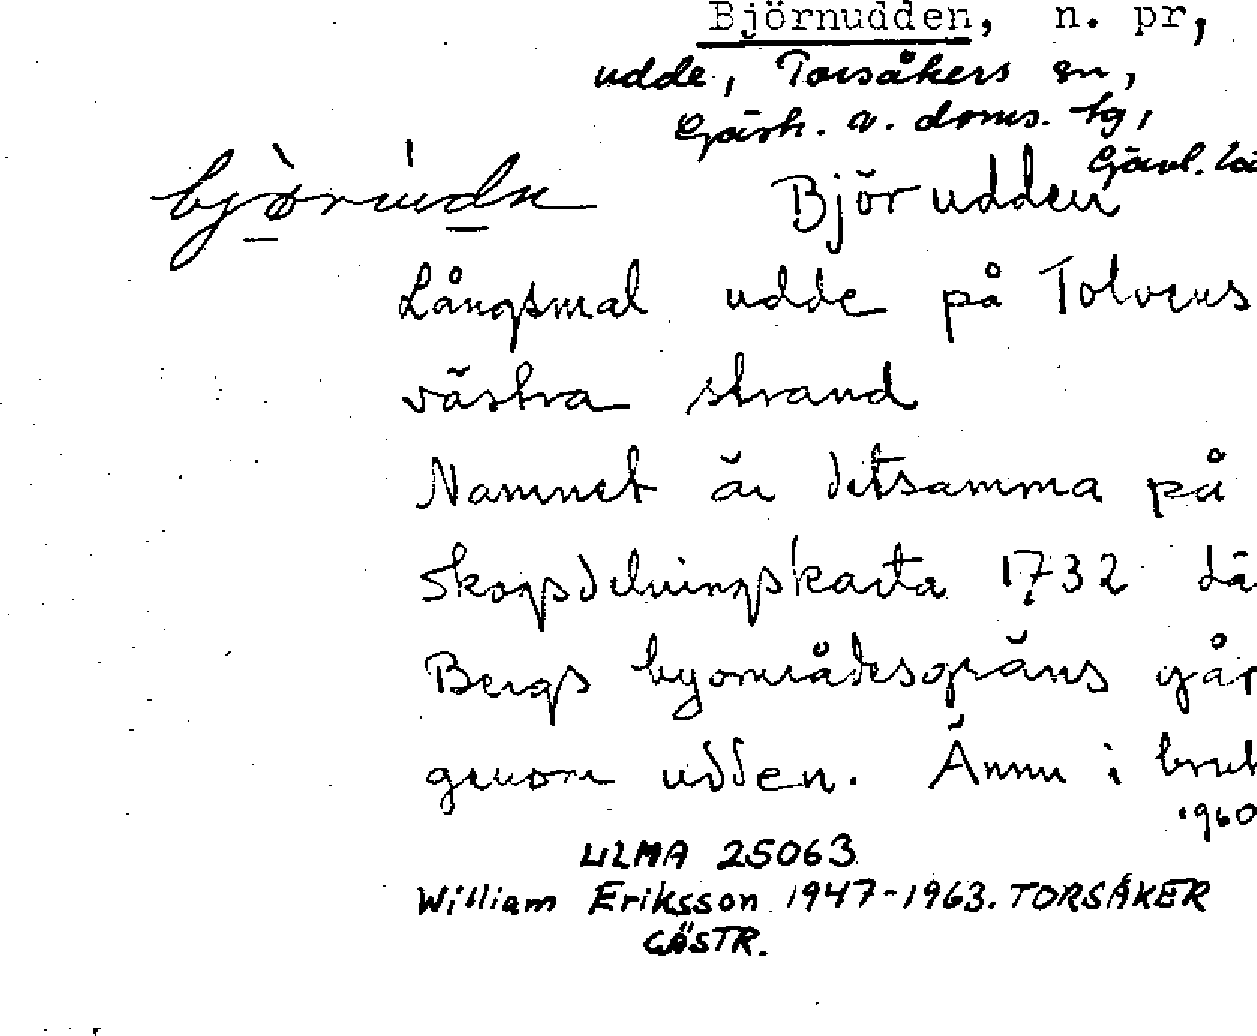 Björnudden, n. pr,
udde, Torsåkers sn,
Gästr. v. doms. tg,
Gävl. lä
Björudden
Långsmal udde på Tolvens
västra strand
Namnet är detsamma på
skogsdelningskarta 1732 dä
Bergs byområdesgräns går
genom udden. Ännu i bruk
1960
ULMA 25063
William Eriksson 1947-1963. TORSÅKER
GÄSTR.